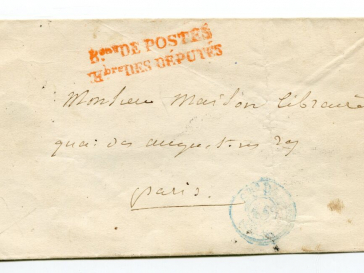 Bau DE POSTES
Chbre DES DÉPUTÉS
Monsieur Maison libraire
quai des augustins 29
paris.